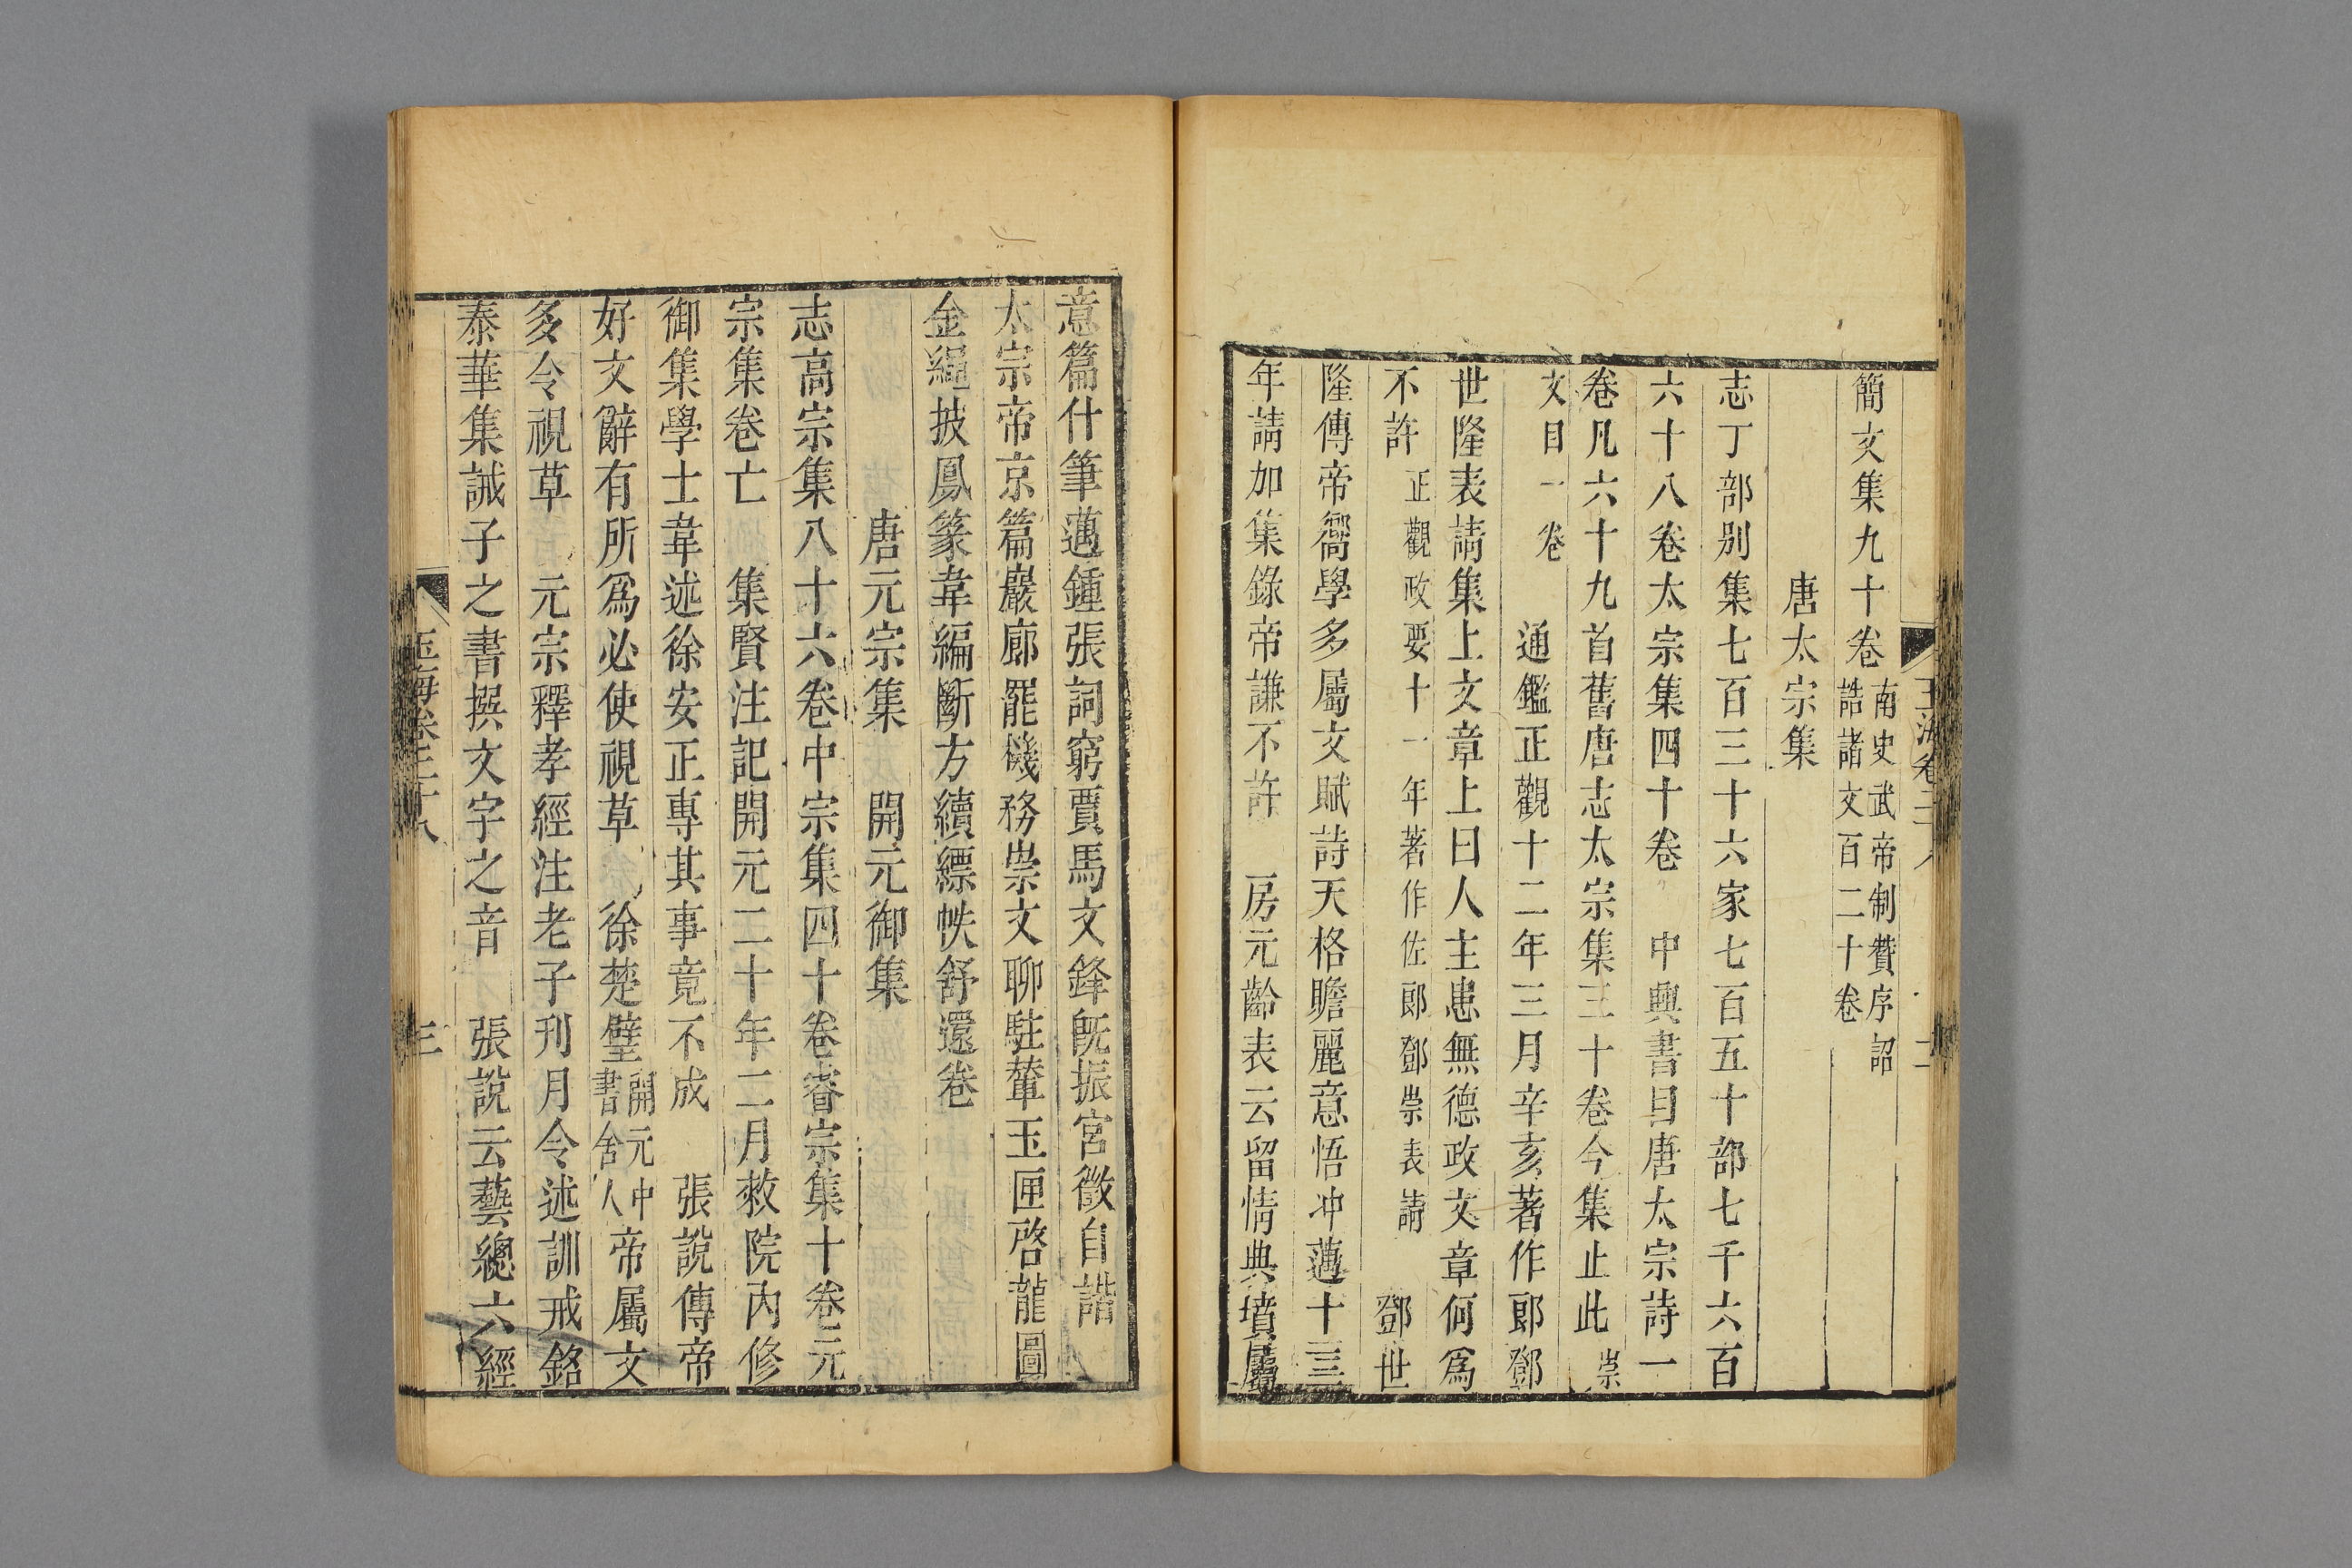 簡文集九十卷南史武帝制贊序詔誥諸文百二十卷
唐太宗集
志丁部別集七百三十六家七百五十部七千六百
六十八卷太宗集四十卷 中興書目唐太宗詩一
卷凡六十九首舊唐志太宗集三十卷今集止此崇
文目一卷 通鑑正觀十二年三月辛亥著作郎鄧
世隆表請集上文章上曰人主患無德政文章何爲
不許正觀政要十一年著作佐郎鄧崇表請 鄧世
隆傳帝嚮學多屬文賦詩天格贍麗意悟冲邁十三
年請加集錄帝謙不許 房元齡表云留情典墳屬
意篇什筆邁鍾張詞窮賈馬文鋒旣振宮徵自諧
太宗帝京篇巖廊罷機務崇文聊駐輦玉匣啓龍圖
金繩披鳳篆韋編斷方續縹帙舒還卷
唐元宗集 開元御集
志高宗集八十六卷中宗集四十卷睿宗集十卷元
宗集卷亡 集賢注記開元二十年二月敕院內修
御集學士韋述徐安正專其事竟不成 張說傳帝
好文辭有所爲必使視草 徐楚璧開元中書舍人帝屬文
多令視草 元宗釋孝經注老子刊月令述訓戒銘
泰華集誡子之書撰文字之音 張說云藝總六經
玉海卷二十八 三